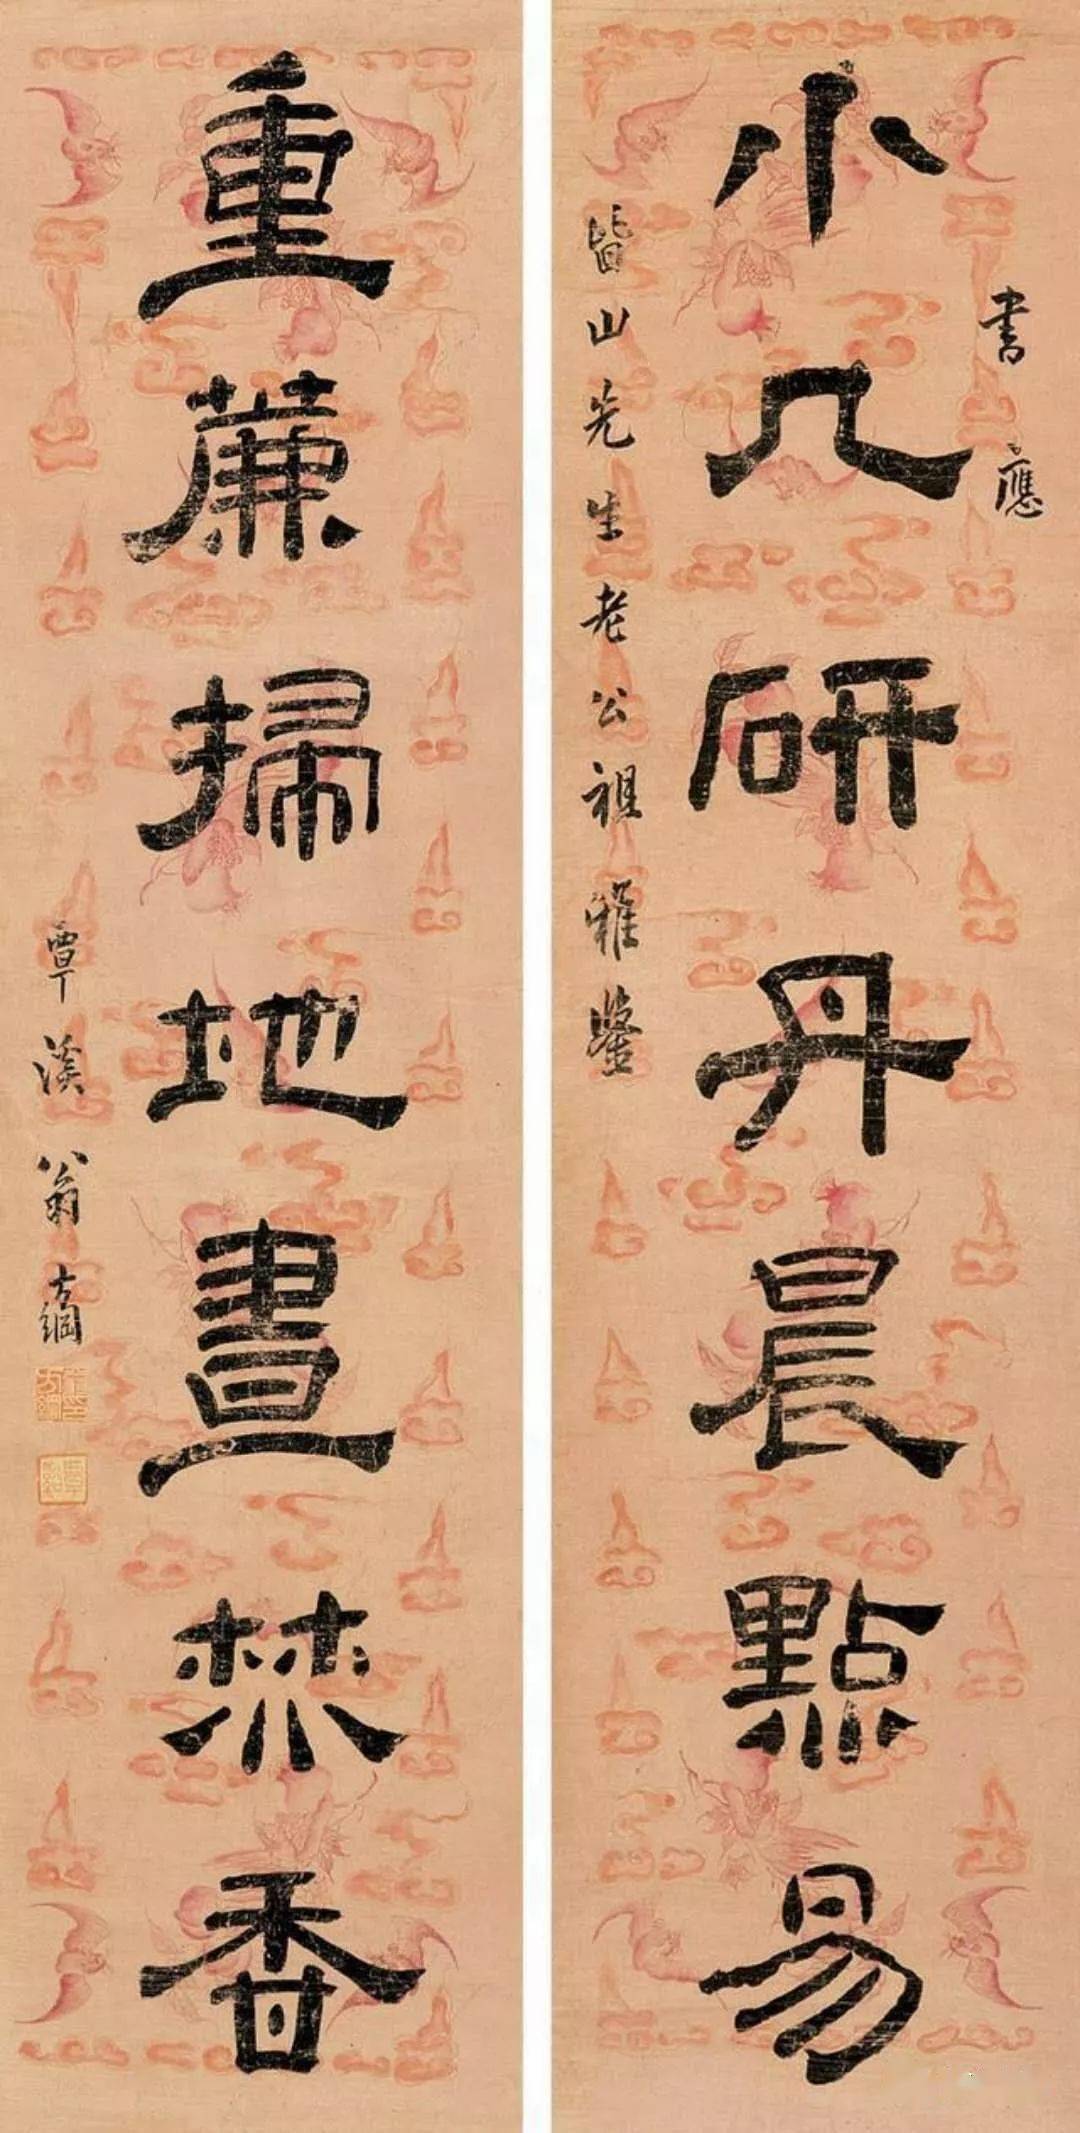 書應
小几研丹晨點易
皆山先生老公祖雅鑒
重簾掃地晝焚香
覃溪翁方綱